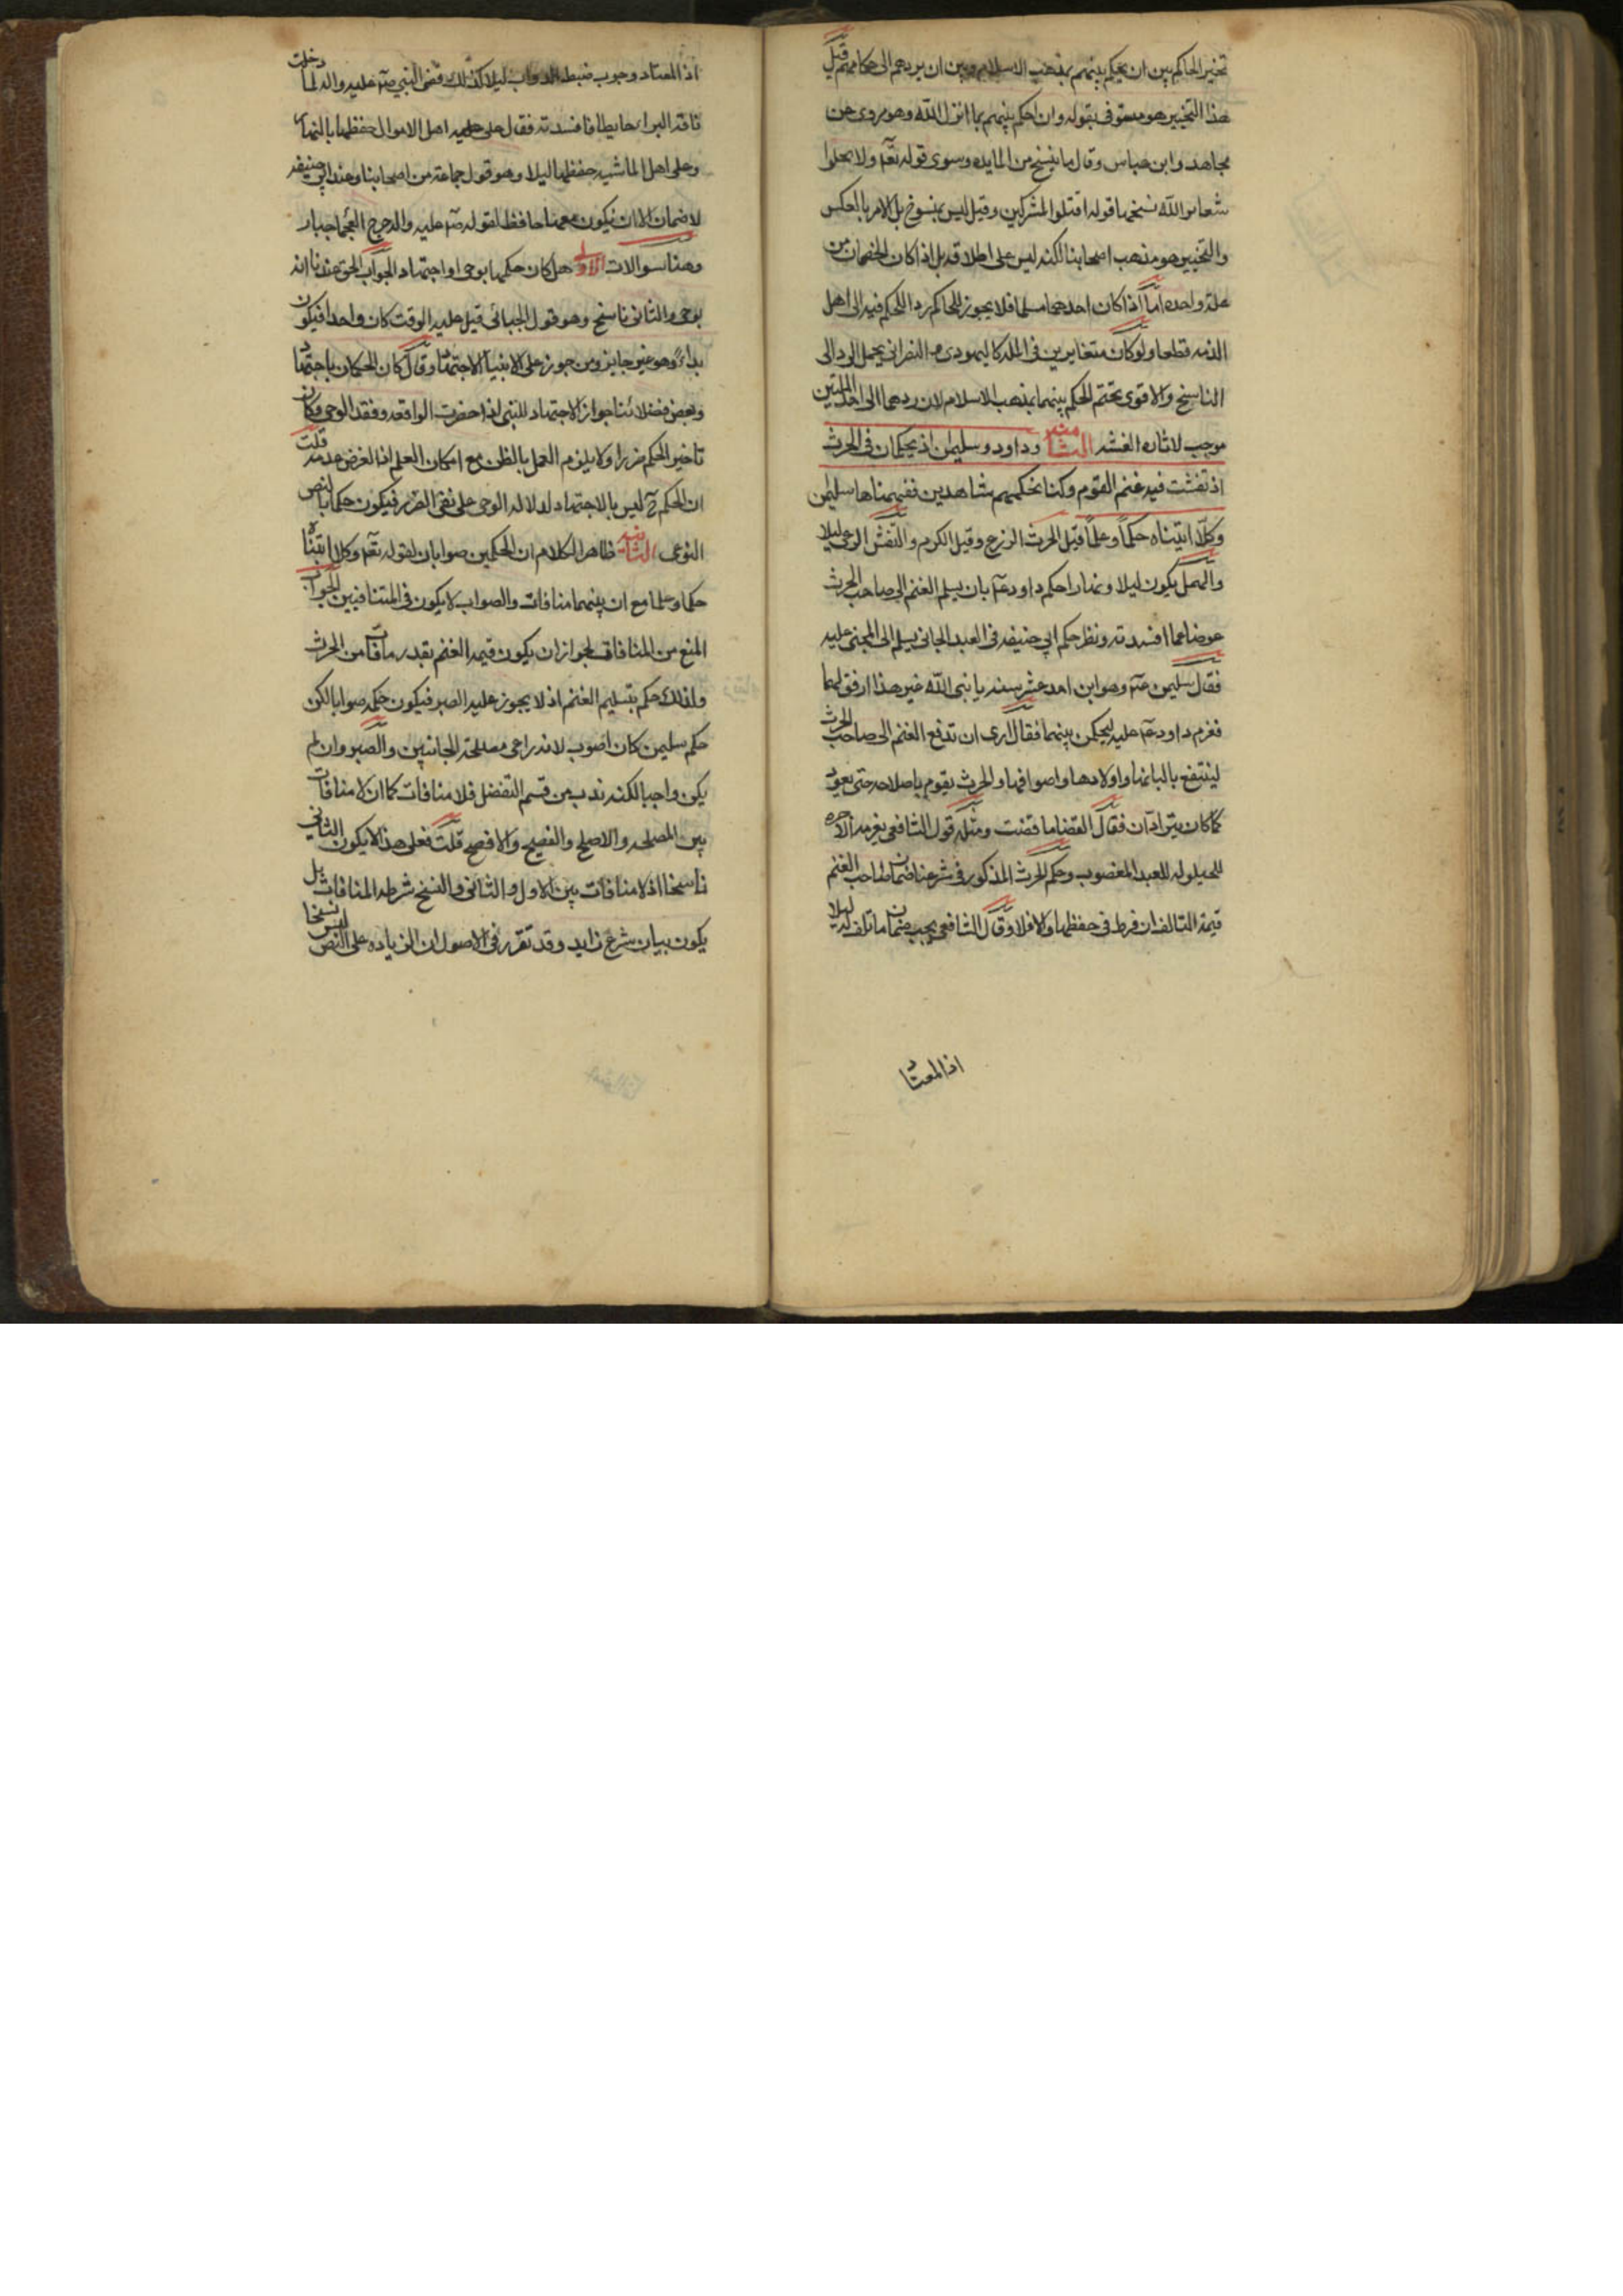 تخيير الحاكم بين ان يحكم بينهم بمذهب الاسلام وبين ان يردهم الى حكامهم قيل
هذا التخيير هو منسوخ بقوله وان احكم بينهم بما انزل الله وهو مروى عن
مجاهد وابن عباس وقال ما نسخ من المايده سوى قوله تعٓ ولا تحلوا
شعاىر الله نسخها قوله اقتلوا المشركين وقيل ليس بمنسوخ بل الامر بالعكس
والتخيير هو مذهب اصحابنا لكنه ليس على اطلاقه بل اذا كان الخصمان من
مله واحده امّا اذا كان احدهما مسلما فلا يجوز للحاكم رد الحكم فيه الى اهل
الذمه قطعا ولو كان متغايرين فى المله كاليهودى مع النصرانى يحمل الرد الى
الناسخ والاقوى تحتم الحكم بينهما بمذهب الاسلام لان ردهما الى احد الملتين
موجب لاثاره الفتنه الثامنه وداود وسليمن اذ يحكمان فى الحرث
اذ نفشت فيه غنم القوم وكنا لحكمهم شاهدين ففهمناها سليمن
وكلّا اتيناه حكماً وعلماً قيل الحرث الزرع وقيل الكرم والنفش الرعى ليلا
والهمل يكون ليلا ونهارا حكم داود عٓ بان يسلم الغنم الى صاحب الحرث
عوضا عما افسدته ونظر حكم ابي حنيفه فى العبد الجانى يسلم الى المجنى عليه
فقال سليمن عٓ وهو ابن احد عشر سنه يا نبى الله غير هذا ارفق لهما
فعزم داود عٓ عليه ليحكمن بينهما فقال ارى ان تدفع الغنم الى صاحب الحرث
لينتفع بالبانها واولادها واصوافها والحرث يقوم باصلاحه حتى يعود
كما كان يترادّان فقال القضا ما قضيت ومثله قول الشافعى يغرمه
للحيلوله للعبد المغصوب وحكم الحرث المذكور فى شرعنا ضمان صاحب الغنم
قيمة التالف ان فرط فى حفظها والا فلا وقال الشافعى يجب ضمان ما تلف ليلا
اذ المعتاد
اذ المعتاد وجوب ضبط الدواب ليلا كذلك قضى النبي صٓ عليه واله لما دخلت
ناقة البراء حايطا فافسدته فقال على اهل الاموال حفظها بالنهار
وعلى اهل الماشيه حفظها ليلا وهو قول جماعة من اصحابنا وعند ابي حنيفه
لا ضمان الا ان يكون معها حافظ لقوله صٓ عليه واله جرح العجما جبار
وهنا سوالات الاول هل كان حكمها بوحى او اجتهاد الجواب الحق عندنا انه
بوحى والثانى ناسخ وهو قول الجبائى قيل عليه الوقت كان واحدا فيكون
بداءً وهو غير جايز ومن جوز على الانبيا الاجتهاد قال كان الحكمان باجتهاد
وبعض فضلائنا جواز الاجتهاد للنبى اذا حضرت الواقعه وفقد الوحى وكان
تاخير الحكم ضررا ولا يلزم العمل بالظن مع امكان العلم اذ الغرض عدمه قلت
ان الحكم حٓ ليس بالاجتهاد لدلاله الوحى على نفى الضرر فيكون حكما بالنص
النوعى الثانيه ظاهر الكلام ان الحكمين صوابان لقوله تعٓ وكلا اتيناه
حكما وعلما مع ان بينهما منافات والصواب لا يكون فى المتنافيين الجواب
المنع من المنافاة لجواز ان يكون قيمه الغنم بقدر ما فات من الحرث
ولذلك حكم بتسليم الغنم اذ لا يجوز عليه الصبر فيكون حكمه صوابا لكن
حكم سليمن كان اصوب لانه راعى مصلحة الجانبين والصبر وان لم
يكن واجبا لكنه ندب من قسم التفضل فلا منافات كما ان لا منافات
بين المصلحه والاصلح والفصيح والافصح قلت فعلى هذا لا يكون الثانى
ناسخا اذ لا منافات بين الاول والثانى والنسخ شرطه المنافات بل
يكون بيان شرع زايد وقد تقرر فى الاصول ان الزياده على النص ليس نسخا